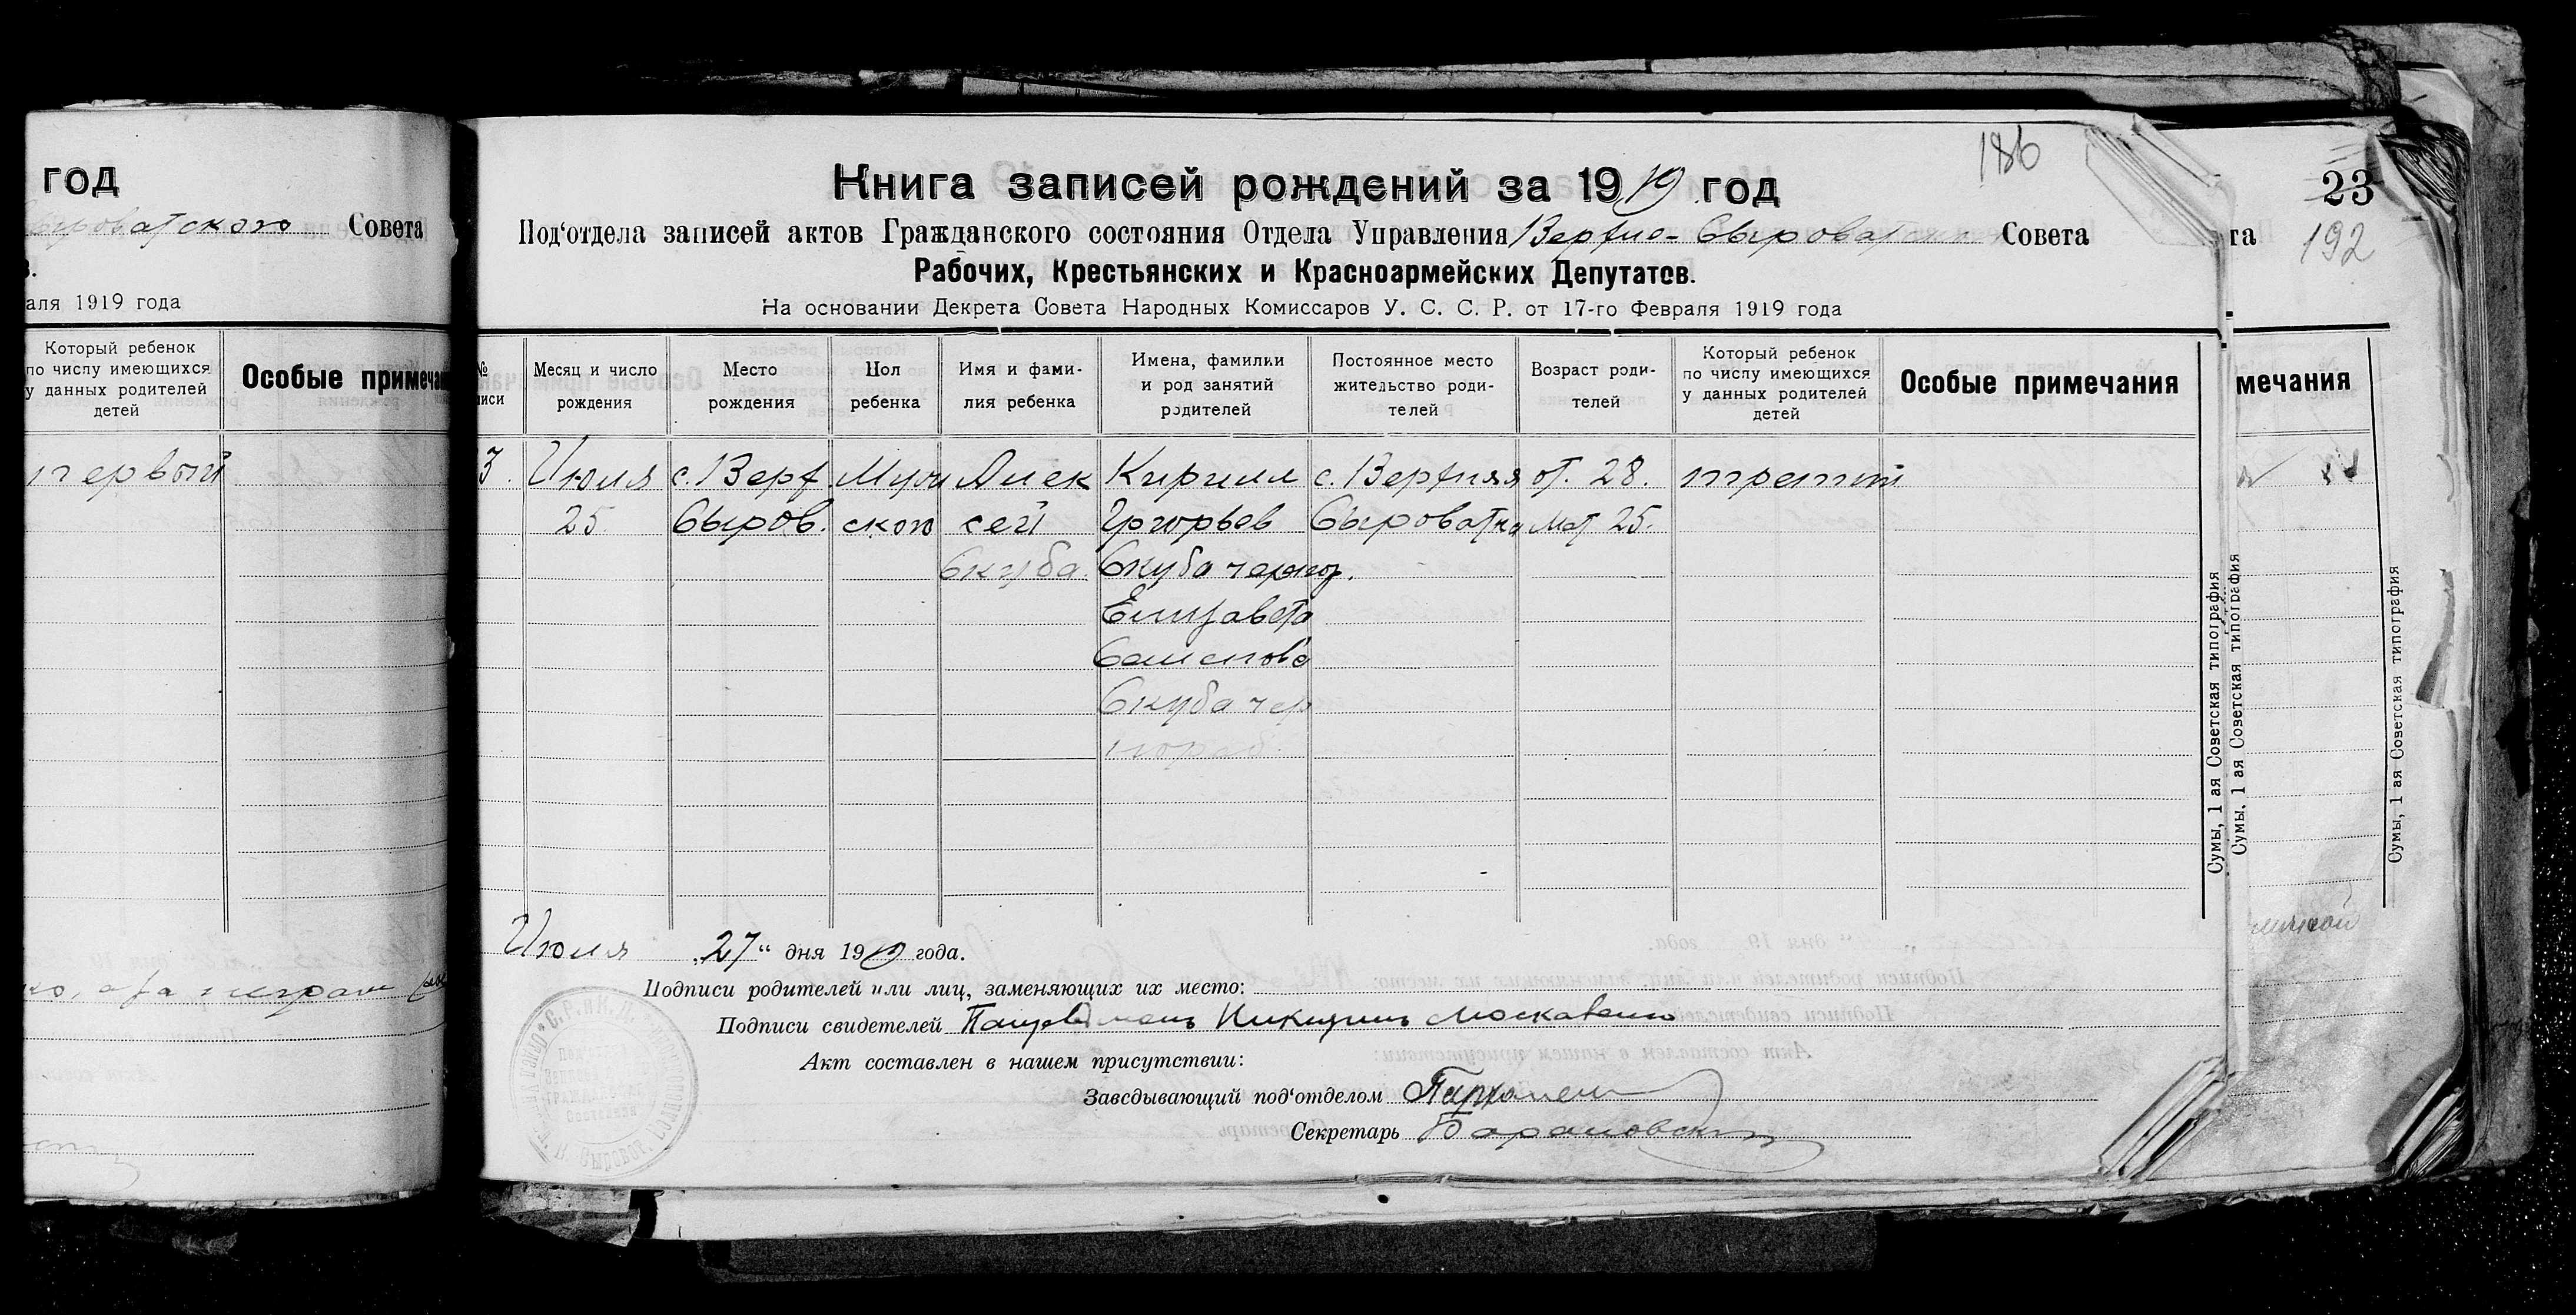 год
Сыроватского Совета
аля 1919 года
Который ребенок
по числу имеющихся
у данных родителей
детей
Особые примечан
первый
186
Книга записей рождений за 1919 год
Под‘отдела записей актов Гражданского состояния Отдела Управления Верхне-Сыроватского Совета
Рабочих, Крестьянских и Красноармейских Депутатов.
На основании Декрета Совета Народных Комиссаров У. С. С. Р. от 17-го Февраля 1919 года
№
писи
Месяц и число
рождения
Место
рождения
Пол
ребенка
Имя и фами-
лия ребенка
Имена, фамилии
и род занятий
родителей
Постоянное место
жительство роди-
телей
Возраст роди-
телей
Который ребенок
по числу имеющихся
у данных родителей
детей
Особые примечания
3. Июля с. Верх. Муж Алек Кирилл с. Верхняя от. 28. третий
25. Сыров. ского сей Григорьев Сыроватка мат 25.
Скуба. Скуба чернор.
Елизавета
Скуба чер
нораб.
Июля „27“ дня 1919 года.
Подписи родителей или лиц, заменяющих их место:
Подписи свидетелей
Акт составлен в нашем присутствии:
Заведывающий под‘отделом
Секретарь Барановский
Сумы, 1 ая Советская типография
Сумы, 1 ая Советская типография
23
192
та
мечания
Сумы, 1 ая Советская типография